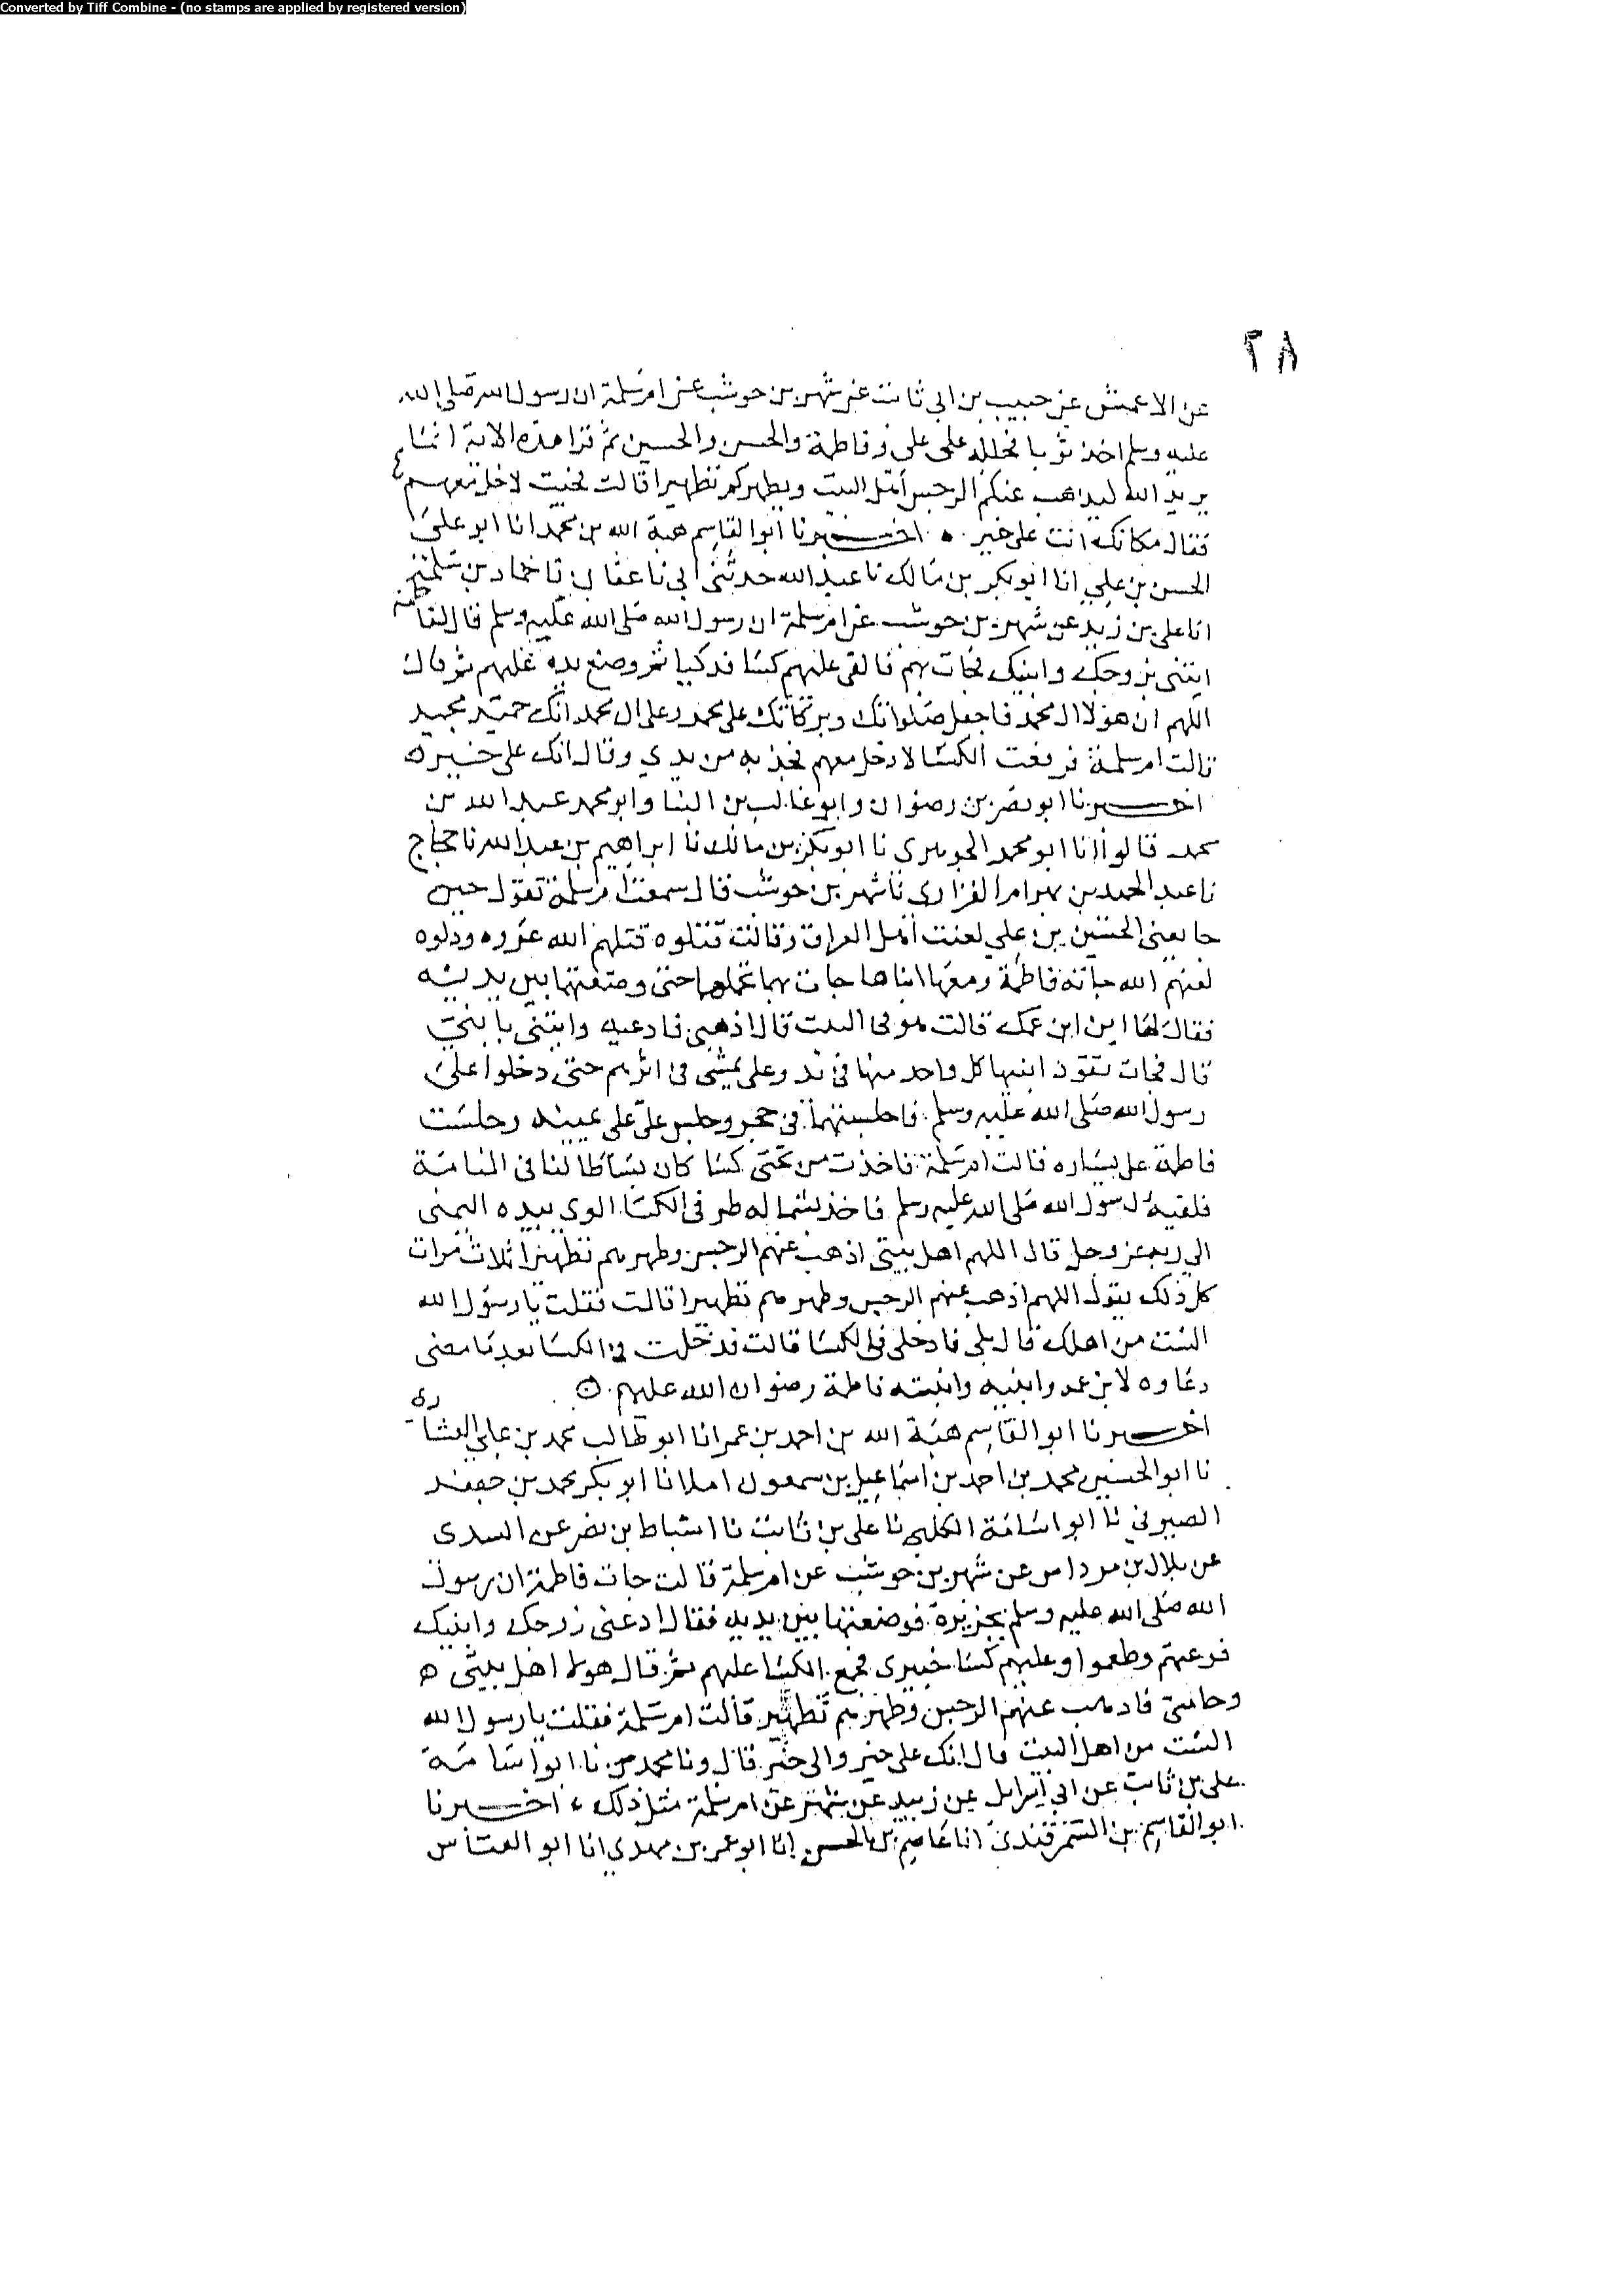 Converted by Tiff Combine - (no stamps are applied by registered version)
٢٨
عن الاعمش عن حبيب بن ابي ثابت عن شهر بن حوشب عن ام سلمة ان رسول الله صلى الله
عليه وسلم اخذ ثوبا فجلله على علي وفاطمة والحسن والحسين ثم قرا هذه الاية انما
يريد الله ليذهب عنكم الرجس اهل البيت ويطهركم تطهيرا قالت فجيت لادخل معهم
فقال مكانك انت على خير ٥ اخبرنا ابو القاسم هبة الله بن محمد انا ابو علي
الحسن بن علي انا ابو بكر بن مالك نا عبد الله حدثني ابي نا عفان نا حماد بن سلمة
انا علي بن زيد عن شهر بن حوشب عن ام سلمة ان رسول الله صلى الله عليه وسلم قال لفاطمة
ايتني بزوجك وابنيك فجات بهم فالقى عليهم كسا فدكيا ثم وضع يده عليهم ثم قال
اللهم ان هولا ال محمد فاجعل صلواتك وبركاتك على محمد وعلى ال محمد انك حميد مجيد
قالت ام سلمة فرفعت الكسا لادخل معهم فجذبه من يدي وقال انك على خير ٥
اخبرنا ابو نصر بن رضوان وابو غالب بن البنا وابو محمد عبد الله بن
محمد قالوا انا ابو محمد الجوهري نا ابو بكر بن مالك نا ابراهيم بن عبد الله نا حجاج
نا عبد الحميد بن بهرام الفزاري نا شهر بن حوشب قال سمعت ام سلمة تقول حين
جا نعي الحسين بن علي لعنت اهل العراق وقالت قتلوه قتلهم الله غروه وذلوه
لعنهم الله جاته فاطمة ومعها ابناها جات بهما تحملهما حتى وضعتهما بين يديه
فقال لها اين ابن عمك قالت هو في البيت قال اذهبي فادعيه وايتني بابني
قال فجات تقود ابنيها كل واحد منهما في يد وعلي يمشي في اثرهم حتى دخلوا على
رسول الله صلى الله عليه وسلم فاجلسهما في حجره وجلس علي على يمينه وجلست
فاطمة على يساره قالت ام سلمة فاخذت من تحتي كسا كان بساطا لنا في المنامة
فلفه رسول الله صلى الله عليه وسلم فاخذ بشماله طرفي الكسا الوى بيده اليمنى
الى ربه عز وجل قال اللهم اهل بيتي اذهب عنهم الرجس وطهرهم تطهيرا ثلاث مرات
كل ذلك يقول اللهم اذهب عنهم الرجس وطهرهم تطهيرا قالت فقلت يا رسول الله
الست من اهلك قال بلى فادخلي في الكسا قالت فدخلت في الكسا بعد ما مضى
دعاوه لابن عمه وابنيه وابنته فاطمة رضوان الله عليهم
اخبرنا ابو القاسم هبة الله بن احمد بن عمر انا ابو طالب محمد بن علي العشاري
نا ابو الحسين محمد بن احمد بن اسماعيل بن سمعون املا نا ابو بكر محمد بن جعفر
الصيرفي نا ابو اسامة الكلبي نا علي بن ثابت نا اسباط بن نصر عن السدي
عن بلال بن مرداس عن شهر بن حوشب عن ام سلمة قالت جات فاطمة ان رسول
الله صلى الله عليه وسلم بخزيرة فوضعتها بين يديه فقال ادعي زوجك وابنيك
فدعتهم وطعموا وعليهم كسا خيبري فجمع الكسا عليهم ثم قال هولا اهل بيتي
وحامتي فاذهب عنهم الرجس وطهرهم تطهيرا قالت ام سلمة فقلت يا رسول الله
الست من اهل البيت قال انك على خير والى خير قال ونا محمد نا ابو اسامة
علي بن ثابت عن ابي اسرايل عن زبيد عن شهر عن ام سلمة مثل ذلك اخبرنا
ابو القاسم بن السمرقندي انا عاصم بن الحسن انا ابو عمر بن مهدي انا ابو العباس